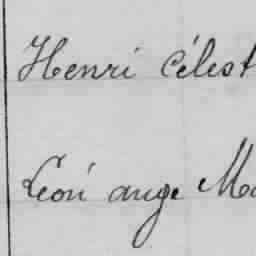 Henri Célest
Léon ange Ma